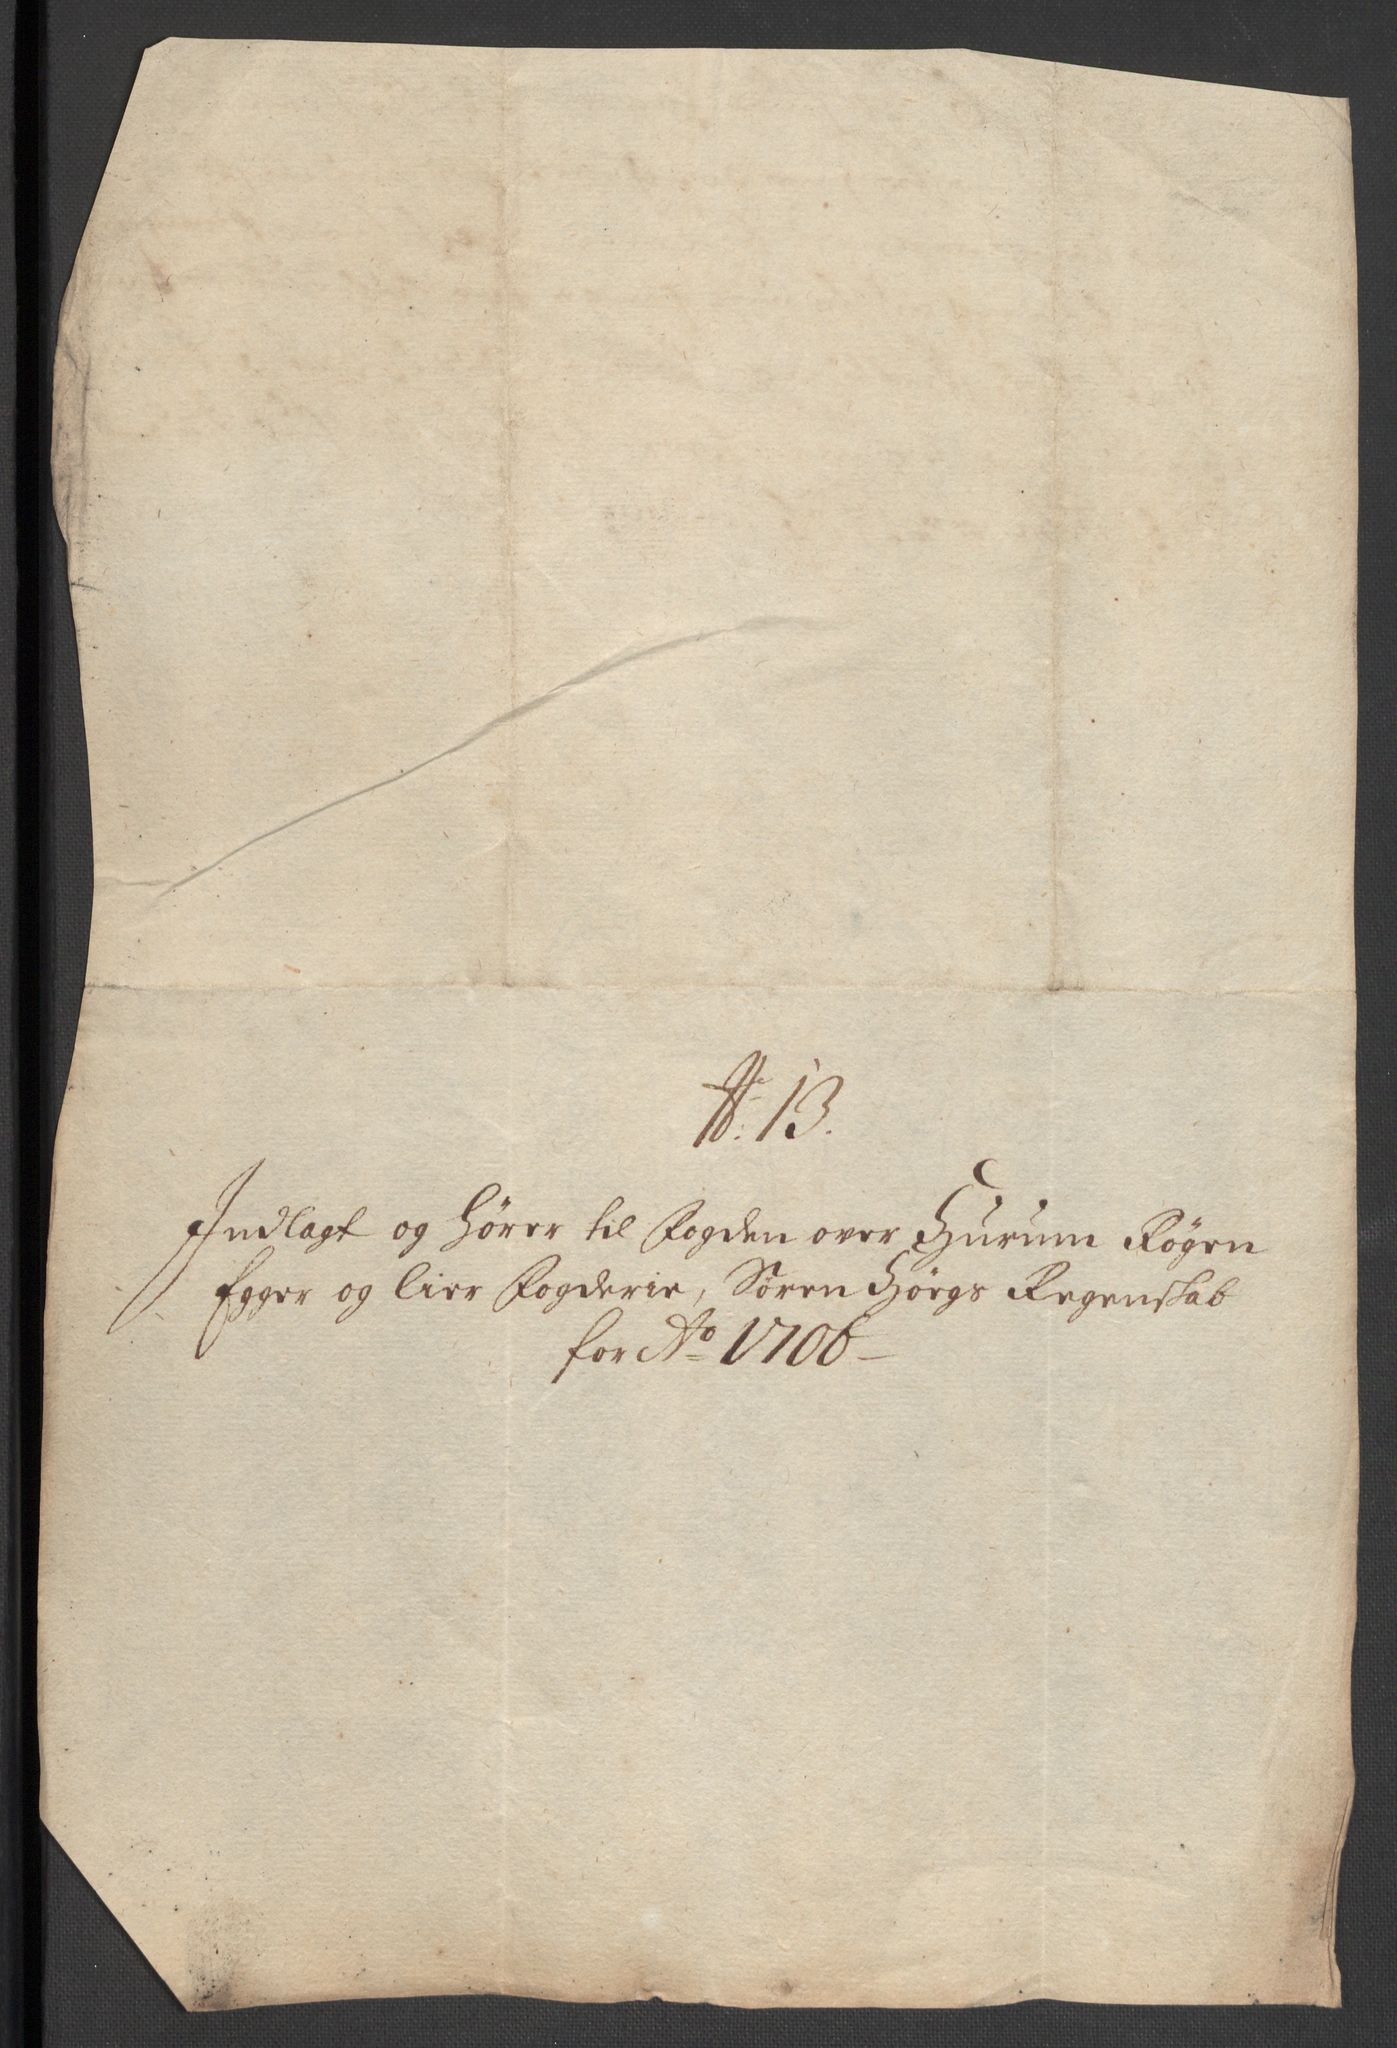 N: 13.
Indlagt og hører til Fogden over Hurum Røgen
Egger og lier Fogderie, Søren Hørgs Regenskab
for Ao 1706